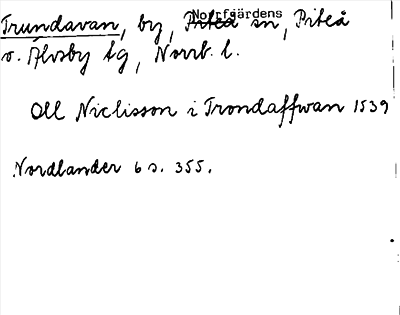 Trundavan, by, Norrfjärdens sn, Piteå
o. Älvsby tg, Norrb. l.
Oll Niclisson i Trondaffwan 1539
Nordlander 6 s. 355.